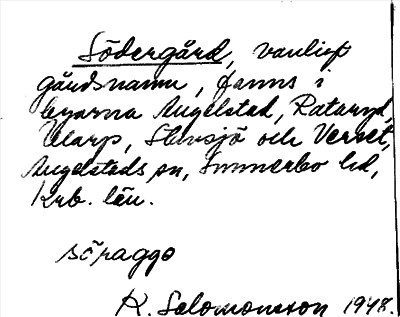 Södergård, vanligt
gårdsnamn, fanns i
byarna Angelstad, Rataryd,
Olarp, Stensjö och Verset,
Angelstads sn, Sunnerbo hd,
Krb. län.
söraggo
K. Salomonsson 1948.